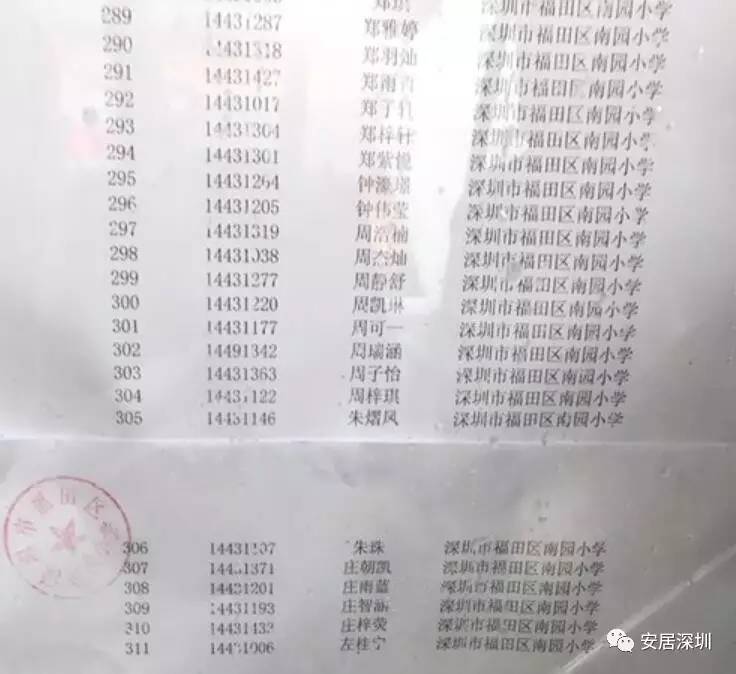 深圳市福田区南园小学
289 14431287 郑雅婷 深圳市福田区南园小学
290 14431318 郑羽灿 深圳市福田区南园小学
291 14431427 深圳市福田区南园小学
292 14431017 深圳市福田区南园小学
293 14431304 郑梓轩 深圳市福田区南园小学
294 14431301 深圳市福田区南园小学
295 14431264 深圳市福田区南园小学
296 14431205 钟伟莹 深圳市福田区南园小学
297 14431319 周浩楠 深圳市福田区南园小学
298 14431038 深圳市福田区南园小学
299 14431277 周静舒 深圳市福田区南园小学
300 14431220 周凯琳 深圳市福田区南园小学
301 14431177 周可一 深圳市福田区南园小学
302 14491342 周瑞涵 深圳市福田区南园小学
303 14431363 周子怡 深圳市福田区南园小学
304 14431122 周梓琪 深圳市福田区南园小学
305 14431146 朱熠风 深圳市福田区南园小学
306 朱珠 深圳市福田区南园小学
307 14431371 庄朝凯 深圳市福田区南园小学
308 14431201 庄雨蓝 深圳市福田区南园小学
309 14431193 庄智涵 深圳市福田区南园小学
310 庄梓荧 深圳市福田区南园小学
311 左桂宁 深圳市福田区南园小学
安居深圳